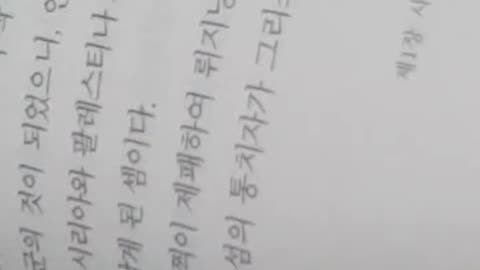 군의 것이 되었으니,
시리아와 팔레스티나
하게 된 셈이다.
찍이 제패하여
섬의 통치자가
제1장